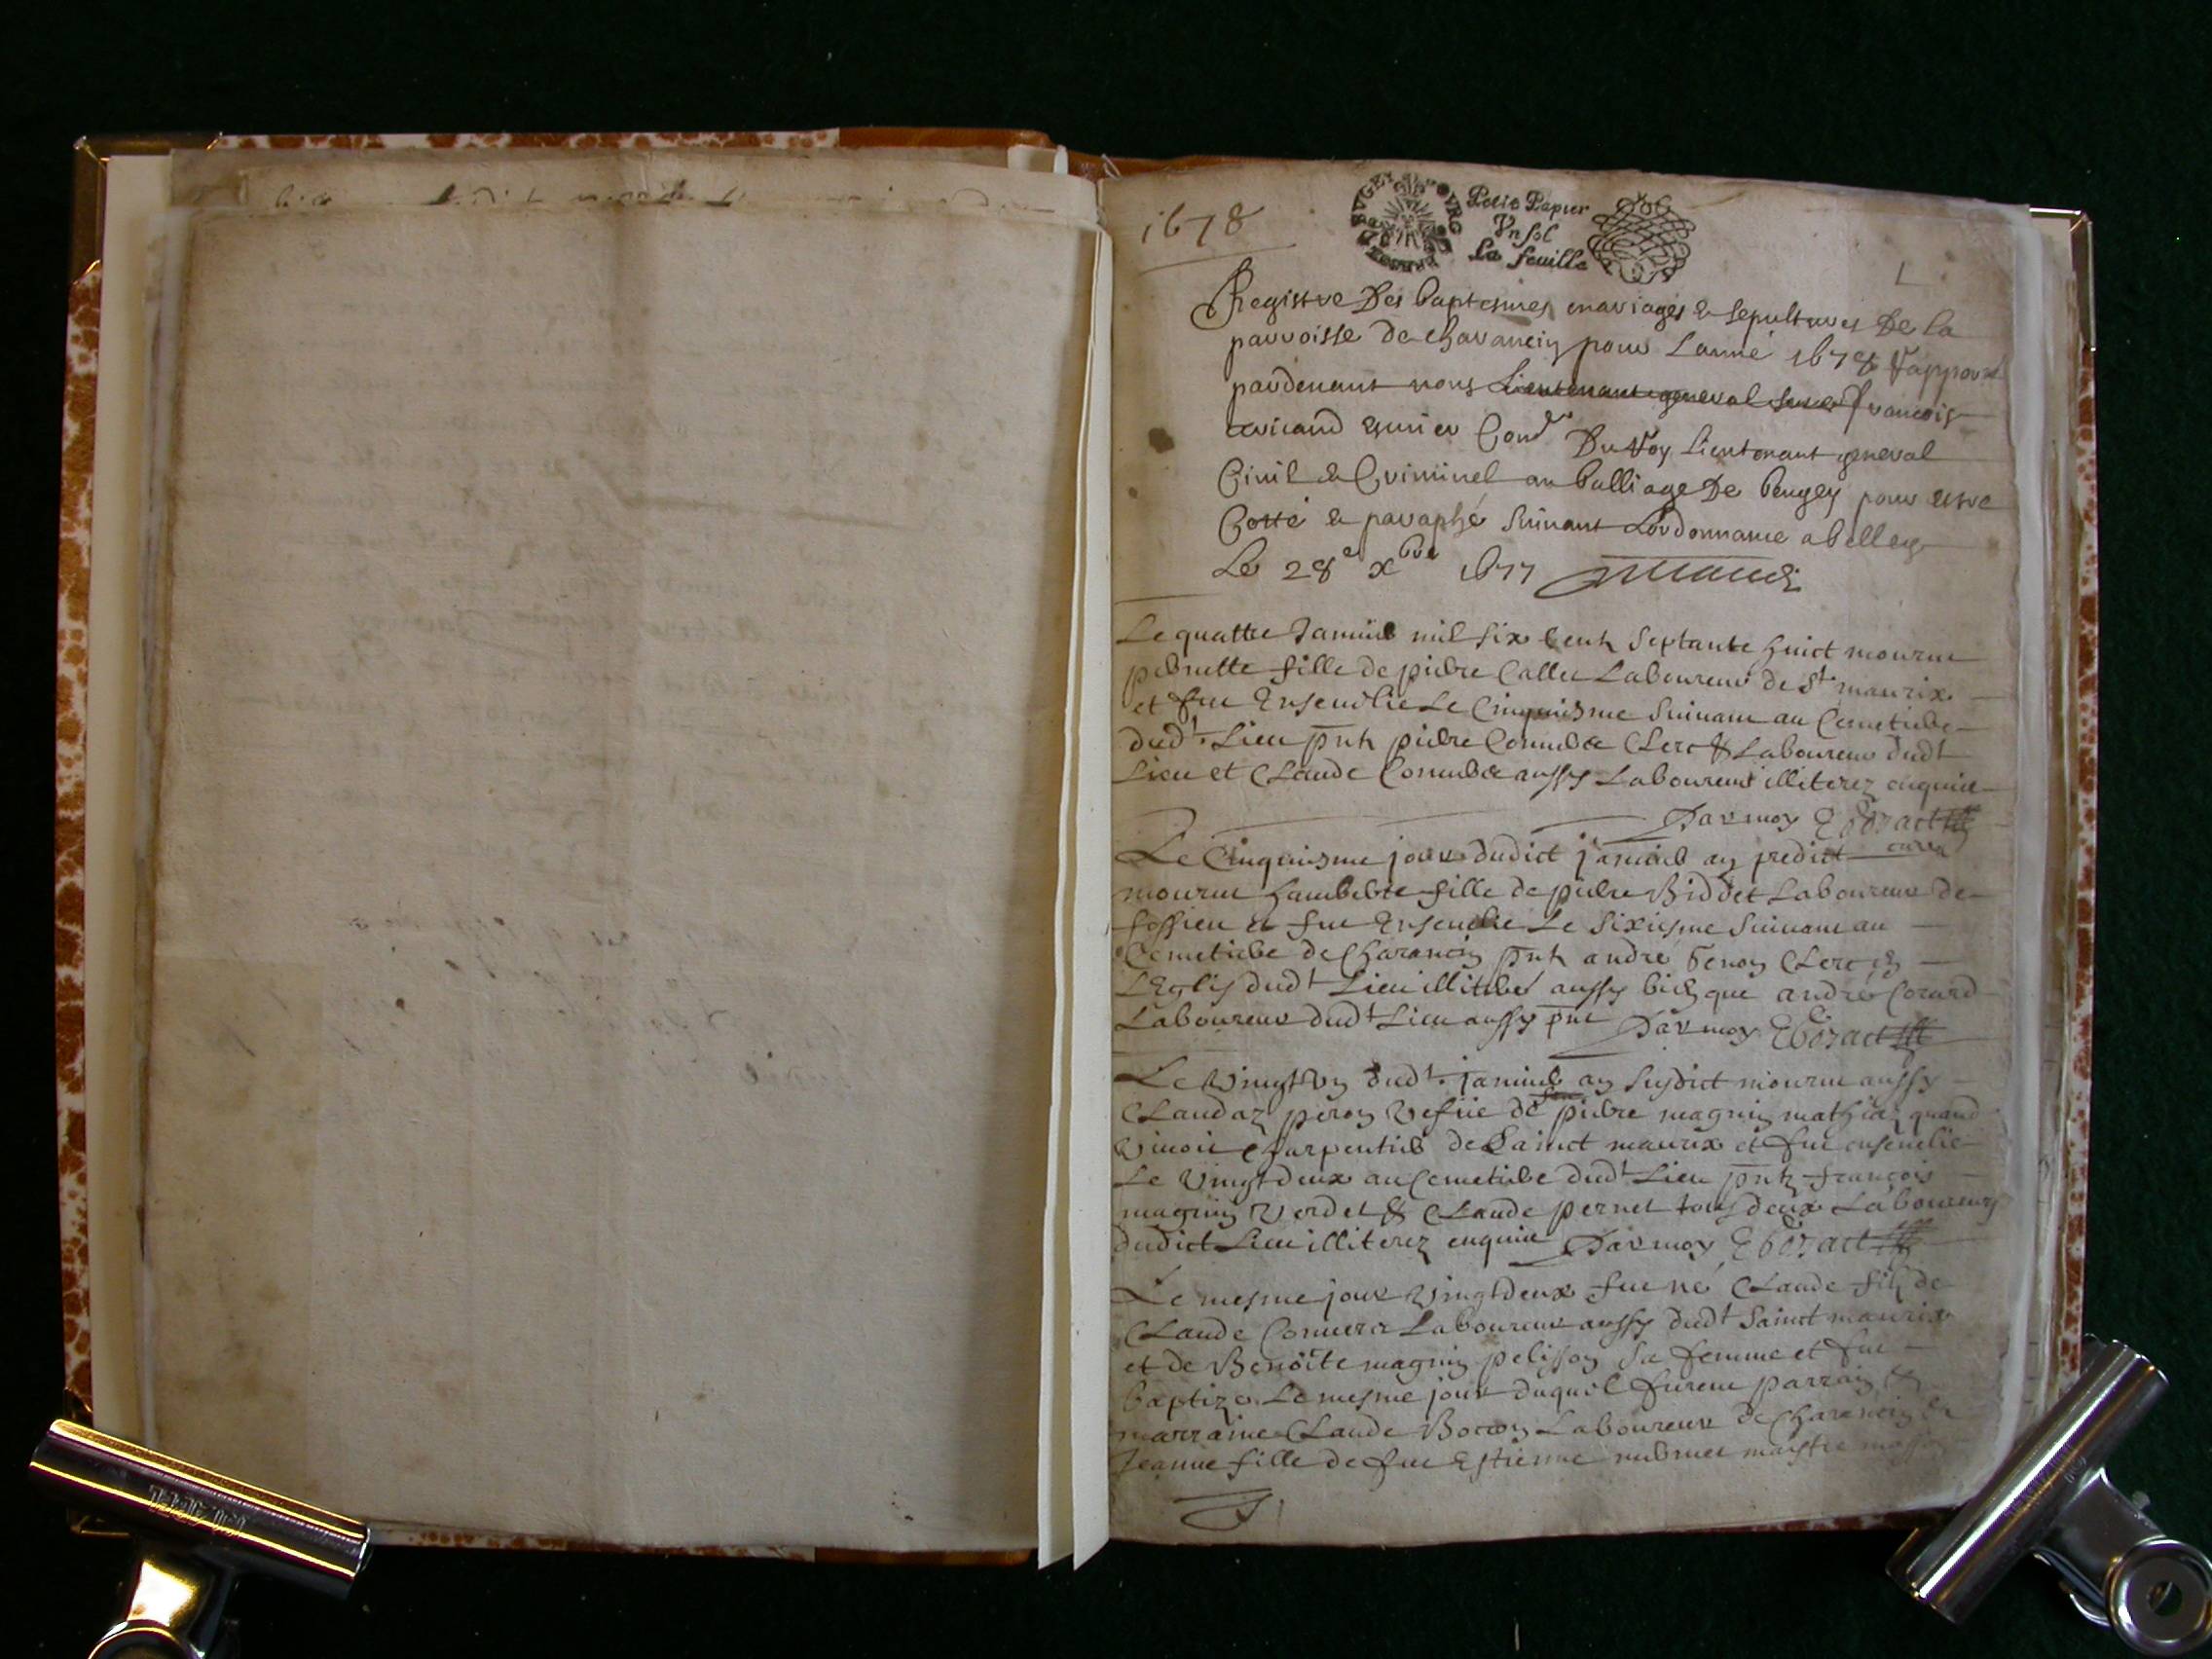 1678
Petit Papier
Vn sol
La feuille
Registre Des baptesmes mariages & sepultures De la
parroisse de charancin pour Lanné 1678 Rapporté
pardeuant nous Lieutenant general françois
escuier Cons.r Du Roy Lieutenant general
Ciuil & Criminel au balliage De beugey pour estre
Cotté & paraphé suiuant Lordonnance a belley
Le 28e xbre 1677
Le quattre Januier mil six Cent septante huict mourut
pernette fille de pierre Callet Laboureur de St maurix
et fut Enseuelie Le Cinquiesme suiuant au Cemetiere
dudt. Lieu pnt pierre Clerc & Laboureur dudt
Lieu et Claude aussy Laboureur illiterez enquis
Par moy
Le Cinquiesme jour dudict januier an predict curé
mourut hamberte fille de pierre Biddet Laboureur de
fossieu et fut Enseuelie Le sixiesme suiuant au
Cemetiere de Charancin pnt andré Genon Clerc en
LEglis dudt Lieu illiteré aussy bien que andré Corard
Laboureur dudt Lieu aussy pnt Par moy
Le Vingt Vn dudt. januier an susdict mourut aussy
Claudaz peron Vefue de feu pierre magnin mathiaz quand
Viuoit Charpentier de Sainct maurix et fut enseuelie
Le Vingtdeux au Cemetiere dudt Lieu pntz françois
magnin Verdet & Claude pernet tous deux Laboureurs
dudict Lieu illiterez enquis Par moy
Le mesme jour Vingtdeux fut né Claude filz de
Claude Laboureur aussy dudt Sainct maurix
et de Benoite magnin pelisson sa femme et fut
baptizé Le mesme jour duquel furent parrain &
marraine Claude Bocon Laboureur de Charancin &
Jeanne fille de feu Estienne maistre masson